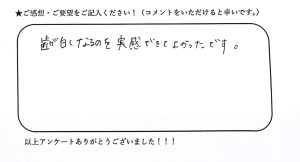 ★ご感想・ご要望をご記入ください！（コメントをいただけると幸いです。）
歯が白くなるのを実感できてよかったです。
以上アンケートありがとうございました！！！